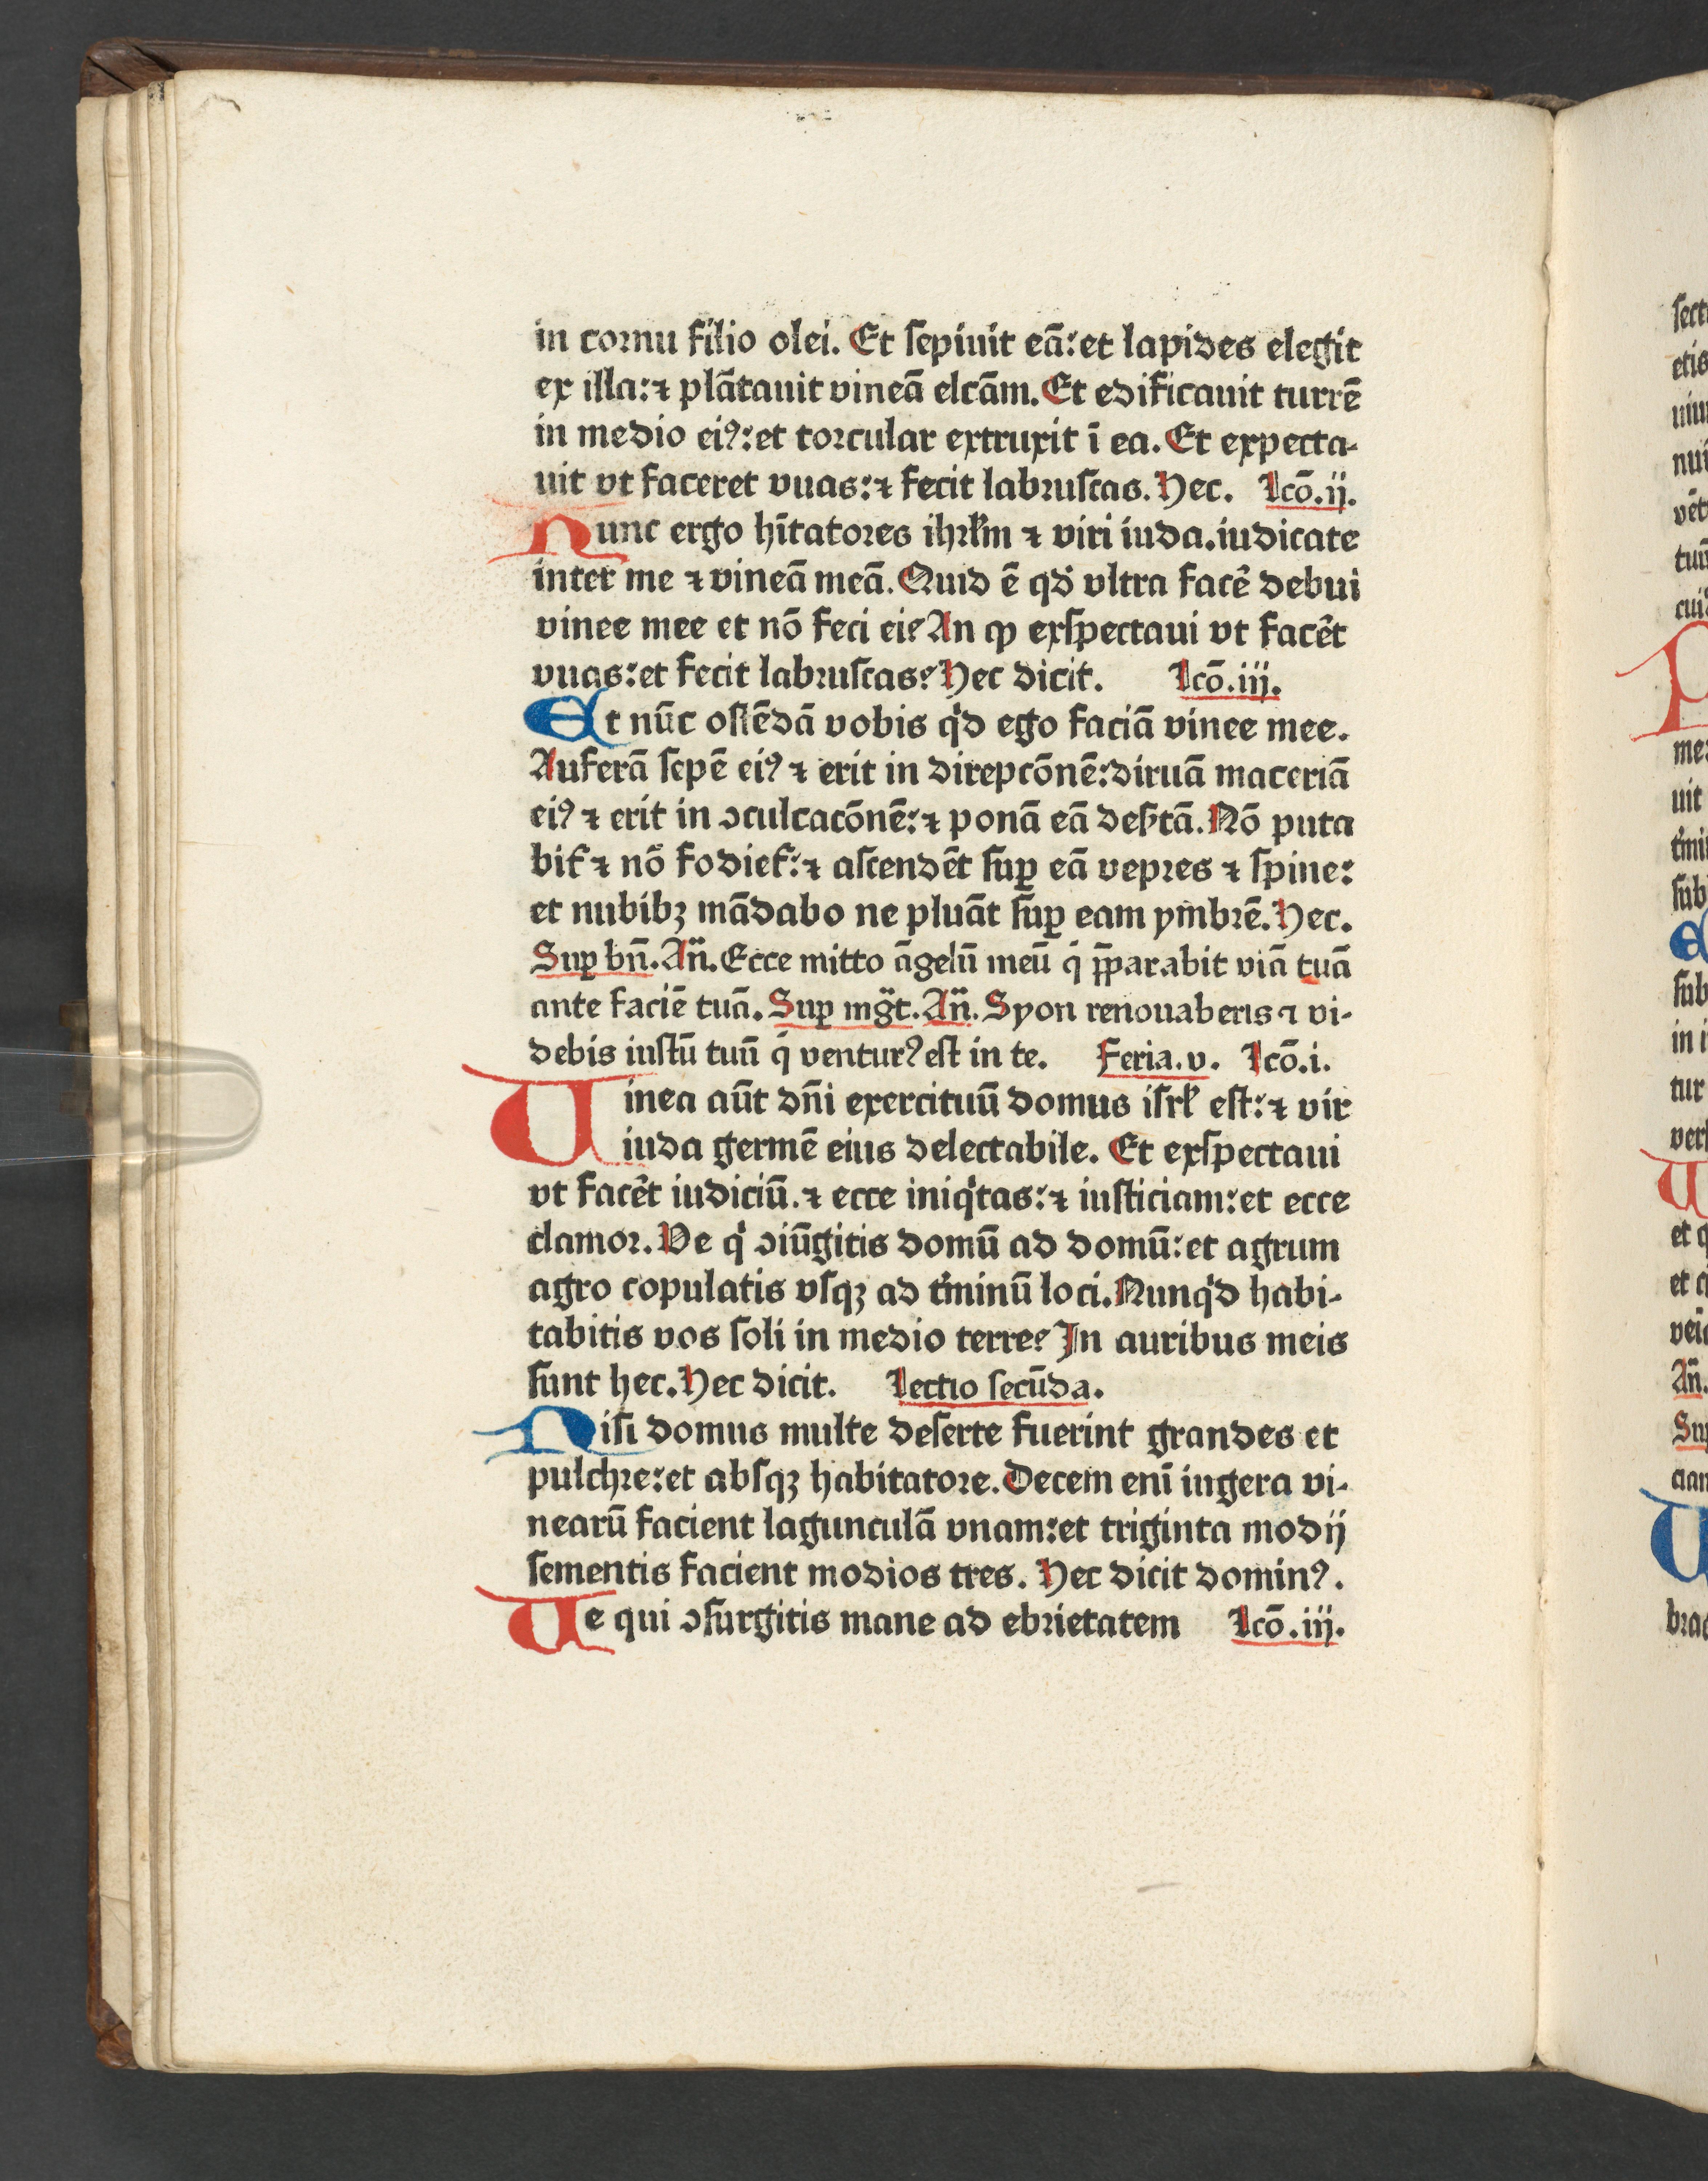 in cornu filio olei. Et ſepiuit eā: et lapides elegit
ex illa: ⁊ plātauit vineā elcām. Et edificauit turrē
in medio eiꝰ: et torcular extruxit ī ea. Et expecta-
uit vt faceret vuas: ⁊ fecit labruſcas. Hec. Lcō. ij.
Nunc ergo hītatores ihrłm ⁊ viri iuda. iudicate
inter me ⁊ vineā meā. Quid ē qđ vltra facē debui
vinee mee et nō feci ei? An ꝙ exſpectaui vt facēt
vuas: et fecit labruſcas? Hec dicit. Lcō. iij.
Et nūc oſtēdā vobis qͥd ego faciā vinee mee.
Auferā ſepē eiꝰ ⁊ erit in direpcōnē: diruā maceriā
eiꝰ ⁊ erit in ꝯculcacōnē: ⁊ ponā eā deſ̄tā. Nō puta
bit̄ ⁊ nō fodiet̄: ⁊ aſcendēt ſuꝑ eā vepres ⁊ ſpine:
et nubibꝫ mādabo ne pluāt ſuꝑ eam ymbrē. Hec.
Suꝑ bn̄. An̄. Ecce mitto āgelū meū qͥ p̄parabit viā tuā
ante faciē tuā. Suꝑ mgt̄. An̄. Syon renouaberis ⁊ vi-
debis iuſtū tuū qͥ venturꝰ eſt in te. Feria. v. Lcō. i.
Uinea aūt dn̄i exercituū domus iſrł eſt: ⁊ vir
iuda germē eius delectabile. Et exſpectaui
vt facēt iudiciū. ⁊ ecce iniqͥtas: ⁊ iuſticiam: et ecce
clamor. Ve qͥ ꝯiūgitis domū ad domū: et agrum
agro copulatis vſqꝫ ad t̄minū loci. Nunqͥd habi-
tabitis vos ſoli in medio terre? In auribus meis
ſunt hec. Hec dicit. Lectio ſecūda.
Niſi domus multe deſerte fuerint grandes et
pulchre: et abſqꝫ habitatore. Decem enī iugera vi-
nearū facient lagunculā vnam: et triginta modij
ſementis facient modios tres. Hec dicit dominꝰ.
Ue qui ꝯſurgitis mane ad ebrietatem Lcō. iij.